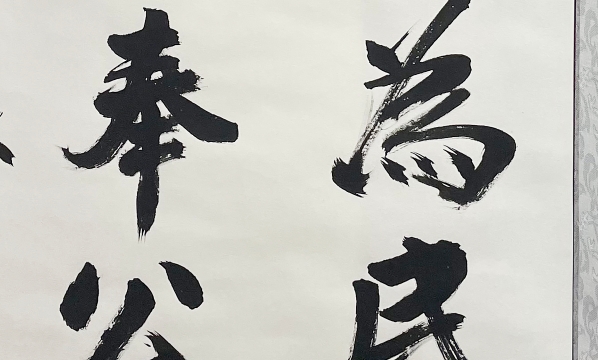 為民
奉公